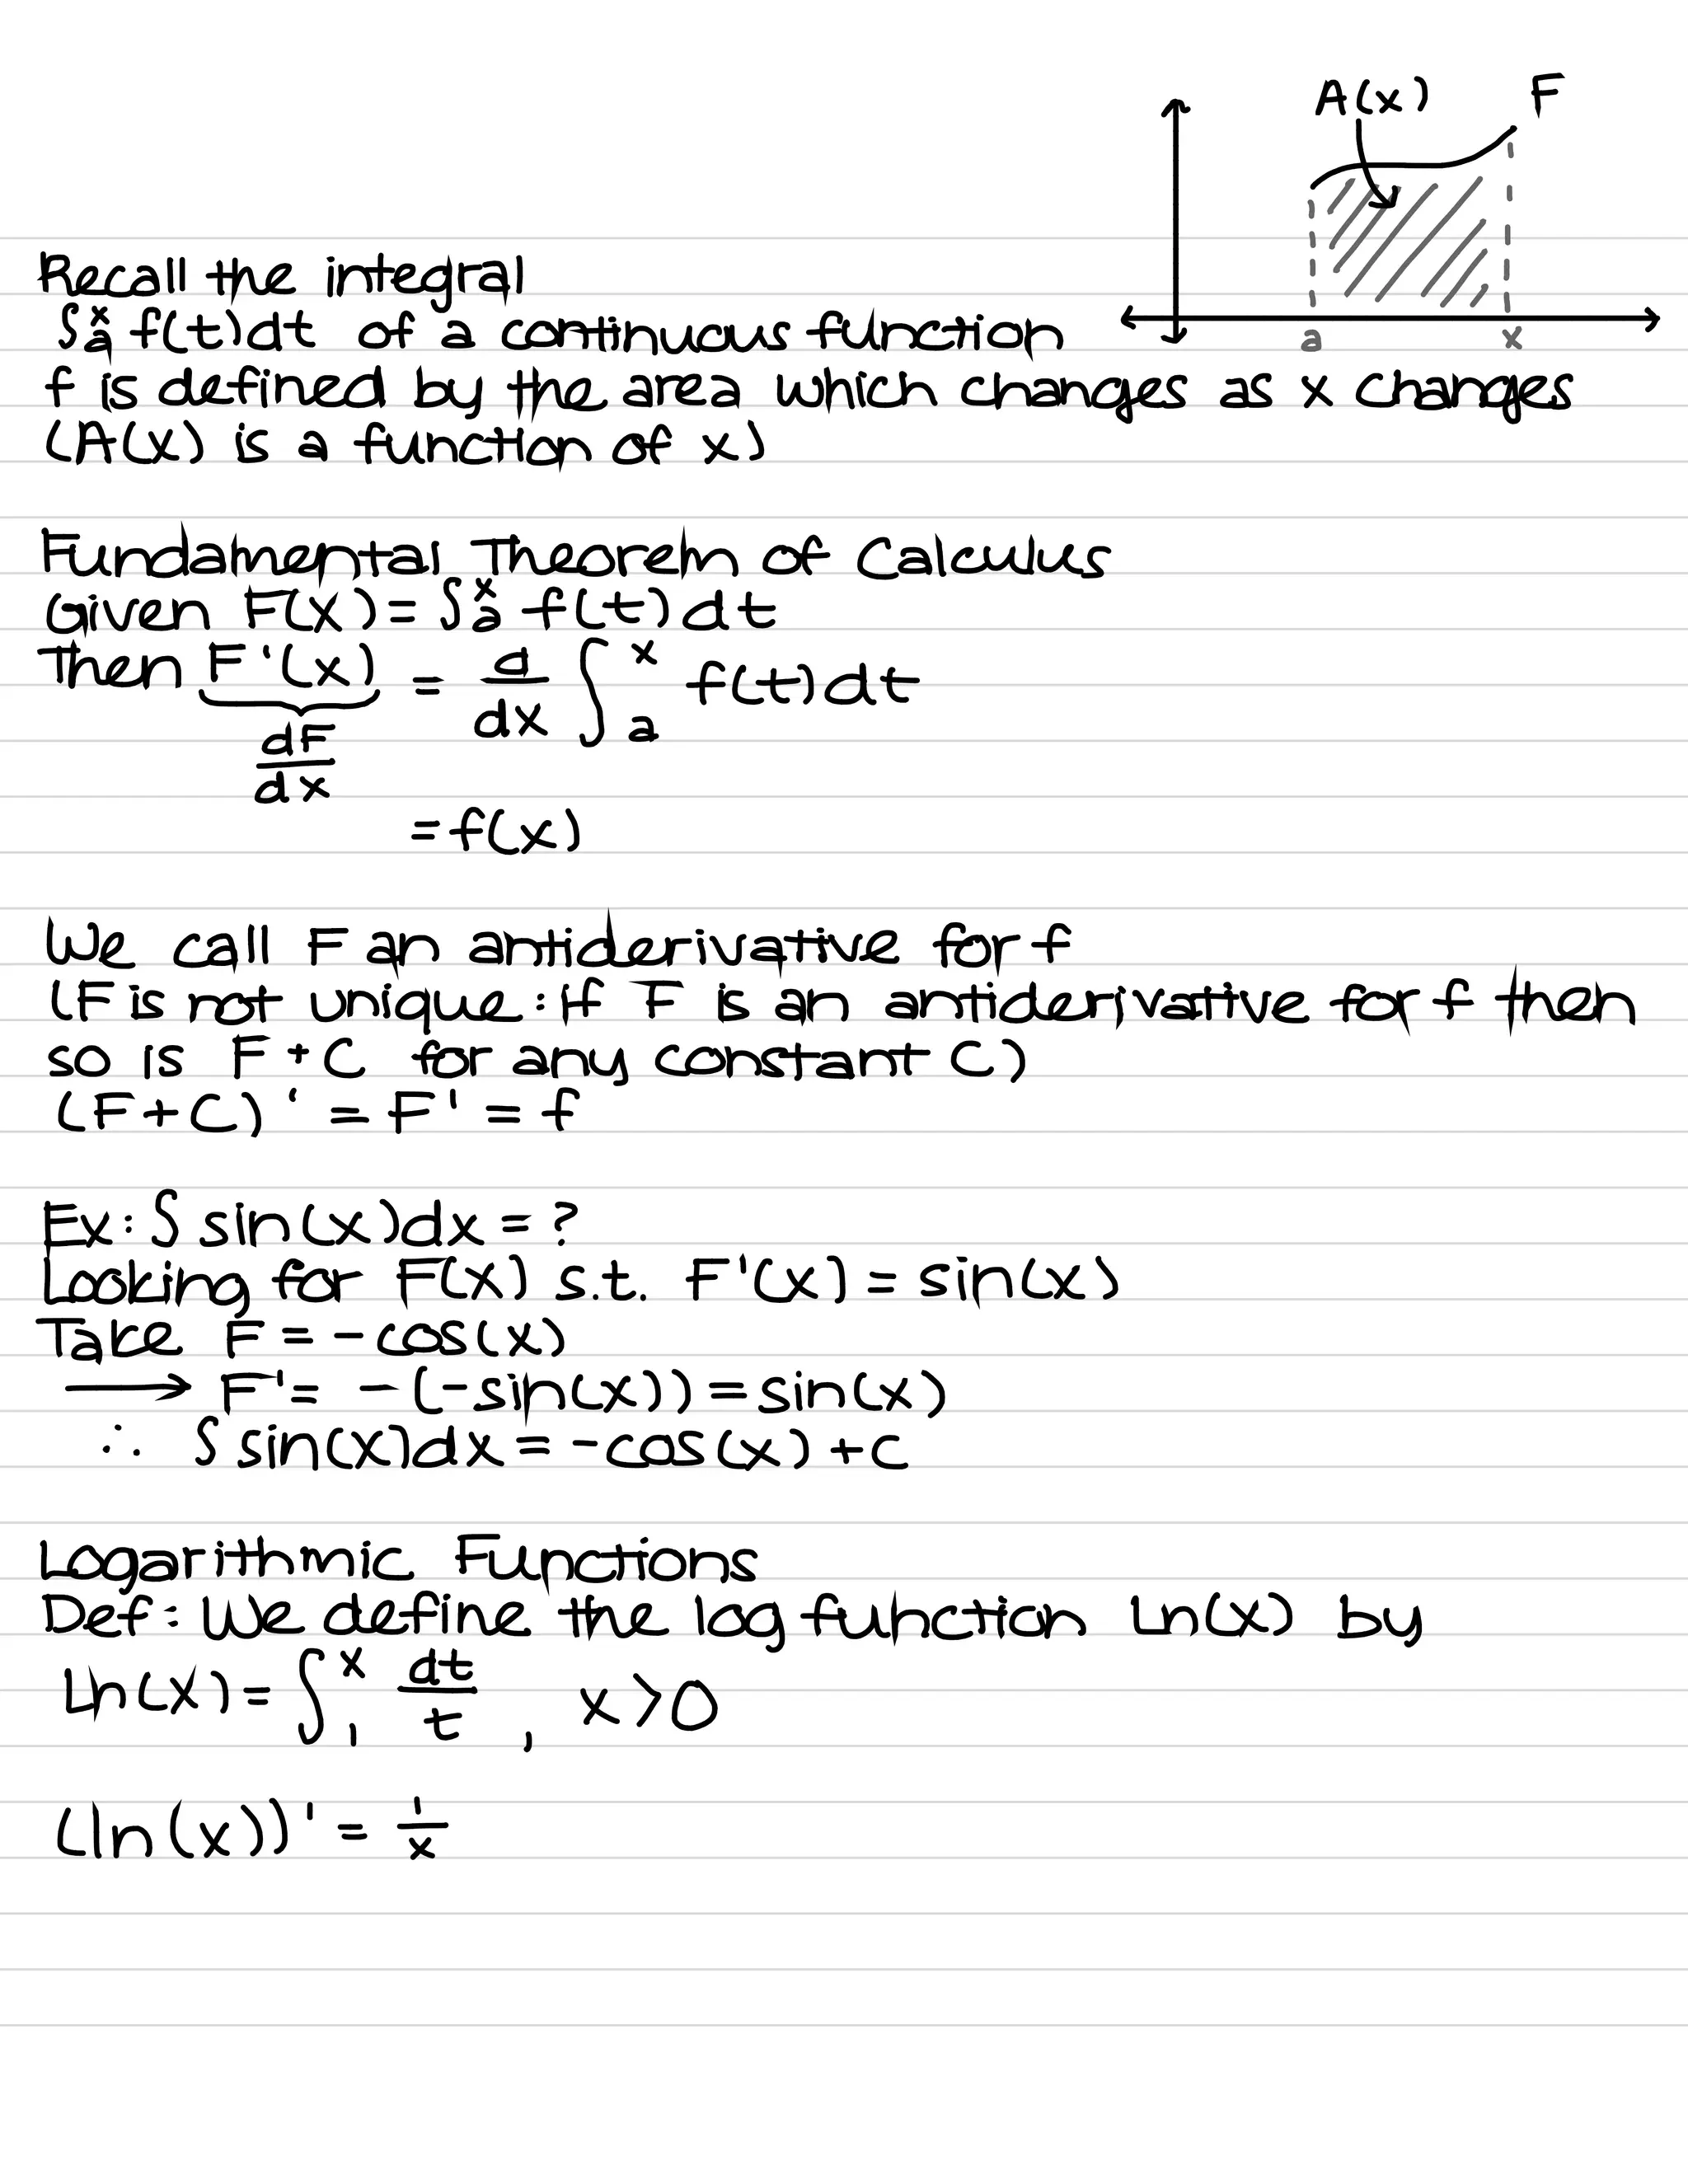 A(x) F
a x
Recall the integral
∫ₐˣ f(t)dt of a continuous function
f is defined by the area which changes as x changes
(A(x) is a function of x)
Fundamental Theorem of Calculus
Given F(x) = ∫ₐˣ f(t)dt
Then F'(x) = d/dx ∫ₐˣ f(t)dt
dF/dx
= f(x)
We call F an antiderivative for f
(F is not unique: if F is an antiderivative for f then
so is F + C for any constant C)
(F+C)' = F' = f
Ex: ∫ sin(x)dx = ?
Looking for F(x) s.t. F'(x) = sin(x)
Take F = -cos(x)
→ F' = -(-sin(x)) = sin(x)
∴ ∫ sin(x)dx = -cos(x) + c
Logarithmic Functions
Def: We define the log function Ln(x) by
Ln(x) = ∫₁ˣ dt/t , x>0
(ln(x))' = 1/x